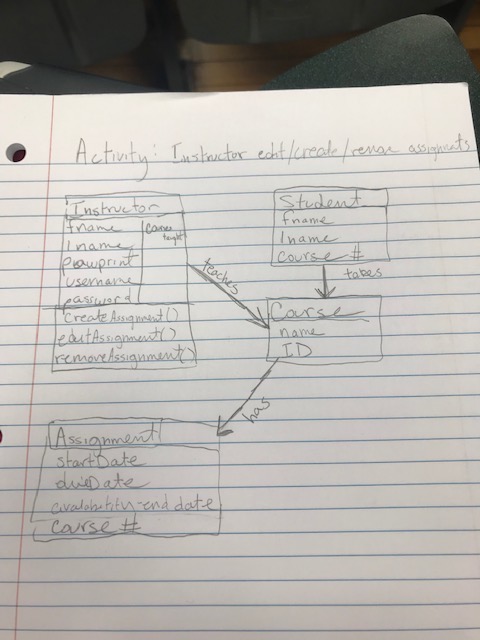 Activity: Instructor edit/create/remove assignments
Instructor
fname
courses taught
lname
pawprint
username
password
createAssignment()
editAssignment()
removeAssignment()
Student
fname
lname
course #
teaches
takes
Course
name
ID
has
Assignment
startDate
dueDate
availability-end date
course #